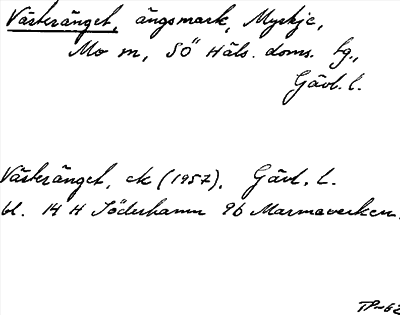 Västeränget, ängsmark, Myskje,
Mo sn, SÖ Häls. doms. tg.,
Gävl. l.
Västeränget, ek (1957), Gävl. l.
bl. 14 H Söderhamn 9b Marmaverken.
TP-62